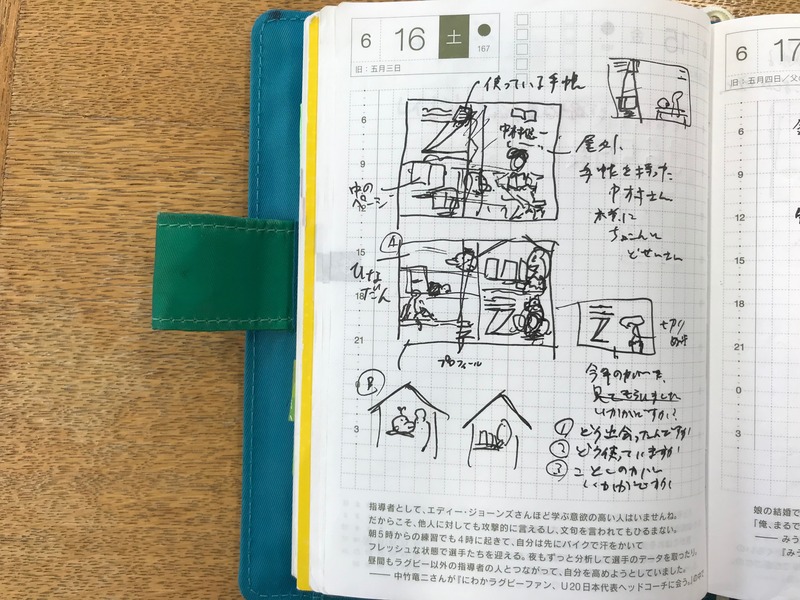 6 16 土
167
旧：五月三日
使っている手帳
屋外。
手帳を持った
中村さん
ちょこんと
どせいさん
中の
ページ
A
ひな
だん
プロフィール
今年のカバーを、
見てもらいました
いかがですか？
B
① どう出会ったんですか
② どう使っていますか
③ ことしのカバー
いかがですか
6
9
12
15
18
21
0
3
指導者として、エディー・ジョーンズさんほど学ぶ意欲の高い人はいませんね。
だからこそ、他人に対しても攻撃的に言えるし、文句を言われてもひるまない。
朝5時からの練習でも4時に起きて、自分は先にバイクで汗をかいて
フレッシュな状態で選手たちを迎える。夜もずっと分析して選手のデータを取ったり。
昼間もラグビー以外の指導者の人とつながって、自分を高めようとしていました。
—— 中竹竜二さんが『にわかラグビーファン、U20日本代表ヘッドコーチに会う。』の中で
6 17
旧：五月四日／父の
6
9
12
15
18
21
0
3
娘の結婚で
「俺、まるで
—— みう
『みう